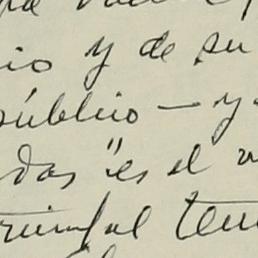 io y de su
público — y
das "es el
triunfal tem